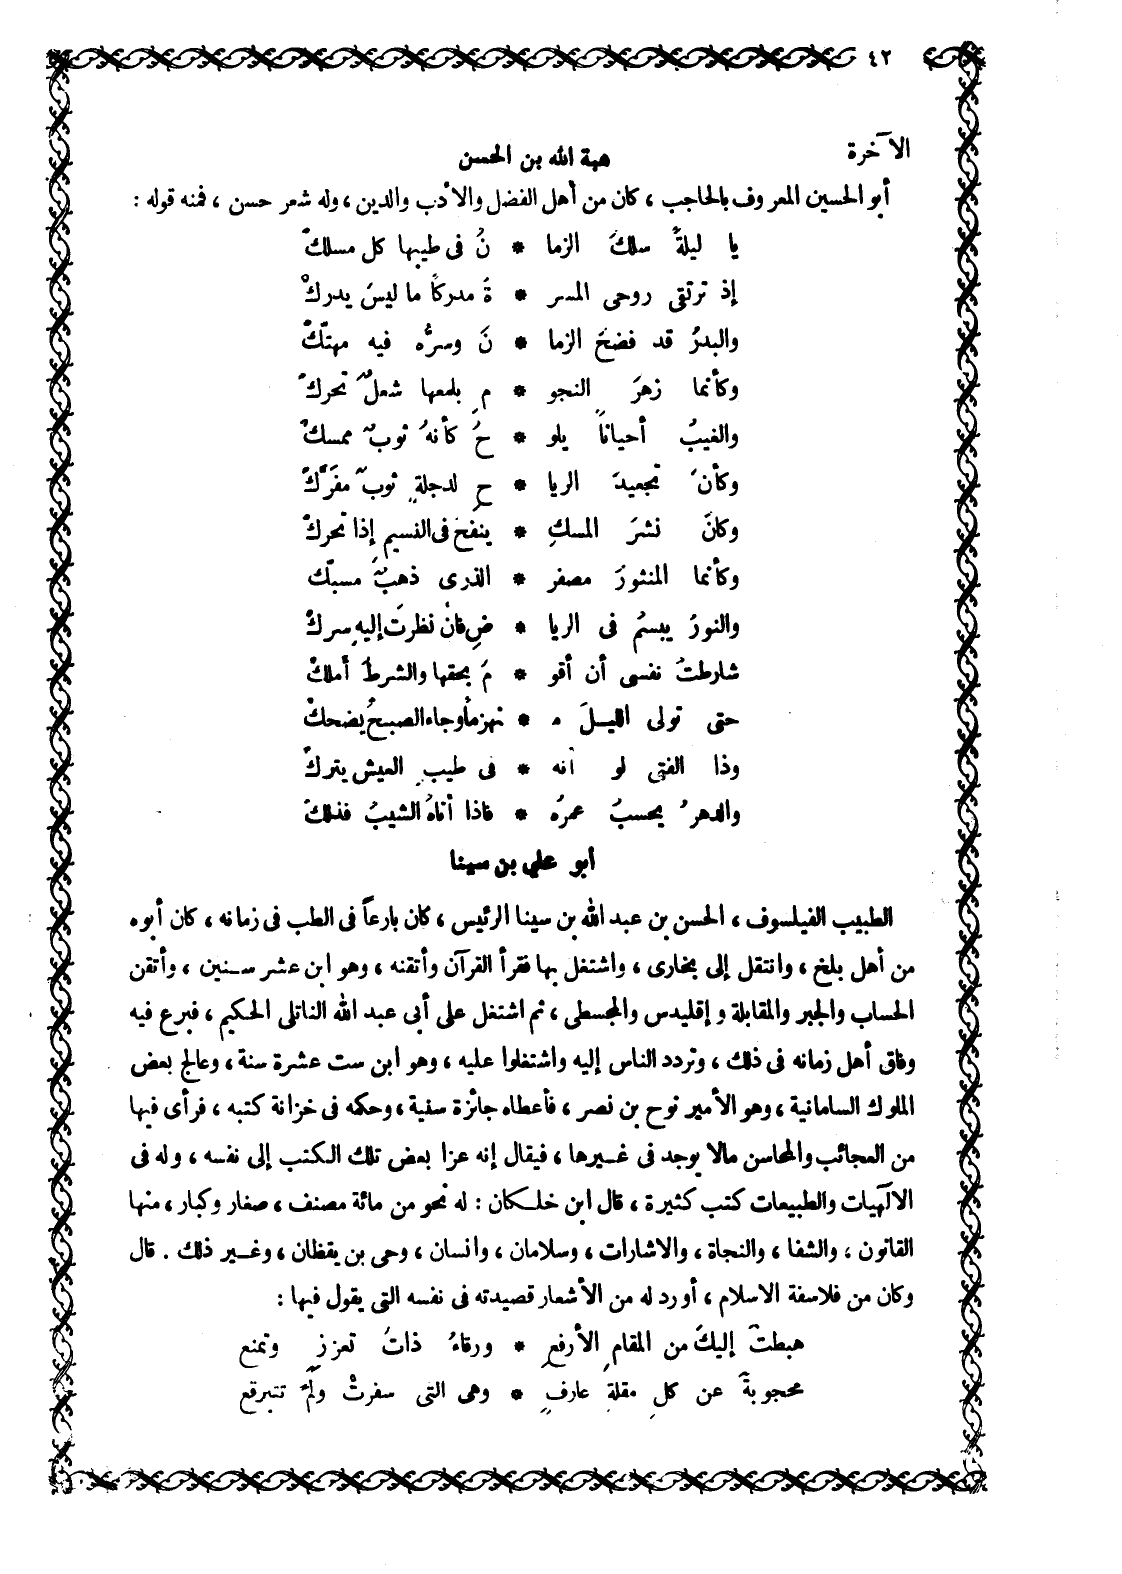 ٤٢
الآخرة
هبة الله بن الحسن
أبو الحسين المعروف بالحاجب ، كان من أهل الفضل والأدب والدين ، وله شعر حسن ، فمنه قوله :
يا ليلةً سلكَ الزما * نُ فى طيبها كل مسلكْ
إذ ترتقى روحى المسر * ةَ مدركاً ما ليسَ يدركْ
والبدرُ قد فضحَ الزما * نَ وسرُّه فيه مهتّكْ
وكأنما زهرَ النجو * مِ بلمعها شعلٌ تحركْ
والغيبُ أحياناً يلو * حُ كأنهُ ثوبٌ ممسكْ
وكأنَ تجعيدَ الريا * حِ لدجلةٍ ثوبٌ مفَرّكْ
وكانَ نشرَ المسكِ * ينفحُ فى النسيمِ إذا تحركْ
وكأنما المنثورَ مصفر * الذرى ذهبٌ مسبّك
والنورُ يبسمُ فى الريا * ضِ فانْ نظرتَ إليهِ سركْ
شارطتُ نفسى أن أقو * مَ بحقها والشرطُ أملكْ
حتى تولى الليلَ م * نهزماً وجاء الصبحُ يضحكْ
وذا الفتى لو أنه * فى طيبِ العيش يتركْ
والدهرُ يحسبُ عمرُه * فاذا أتاهُ الشيبُ فذلكْ
أبو على بن سينا
الطبيب الفيلسوف ، الحسن بن عبد الله بن سينا الرئيس ، كان بارعاً فى الطب فى زمانه ، كان أبوه
من أهل بلخ ، وانتقل إلى بخارى ، واشتغل بها فقرأ القرآن وأتقنه ، وهو ابن عشر سنين ، وأتقن
الحساب والجبر والمقابلة و إقليدس والمجسطى ، ثم اشتغل على أبى عبد الله الناتلى الحكيم ، فبرع فيه
وفاق أهل زمانه فى ذلك ، وتردد الناس إليه واشتغلوا عليه ، وهو ابن ست عشرة سنة ، وعالج بعض
الملوك السامانية ، وهو الأمير نوح بن نصر ، فأعطاه جائزة سنية ، وحكمه فى خزانة كتبه ، فرأى فيها
من العجائب والمحاسن مالا يوجد فى غيرها ، فيقال إنه عزا بعض تلك الكتب إلى نفسه ، وله فى
الآلهيات والطبيعات كتب كثيرة ، قال ابن خلكان : له نحو من مائة مصنف ، صغار وكبار ، منها
القانون ، والشفا ، والنجاة ، والاشارات ، وسلامان ، وانسان ، وحى بن يقظان ، وغير ذلك . قال
وكان من فلاسفة الاسلام ، أورد له من الأشعار قصيدته فى نفسه التى يقول فيها :
هبطتْ إليكَ من المقامِ الأرفعِ * ورقاءُ ذاتُ تعززٍ وتمنع
محجوبةٌ عن كلِ مقلةِ عارفٍ * وهى التى سفرتْ ولمْ تتبرقع